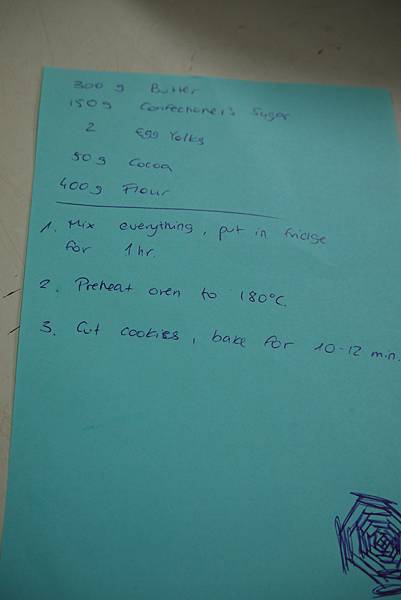 300 g Butter
150 g Confectioner's Sugar
2 Egg Yolks
50 g Cocoa
400 g Flour
1. Mix everything, put in fridge
for 1 hr.
2. Preheat oven to 180°C.
3. Cut cookies, bake for 10-12 min.